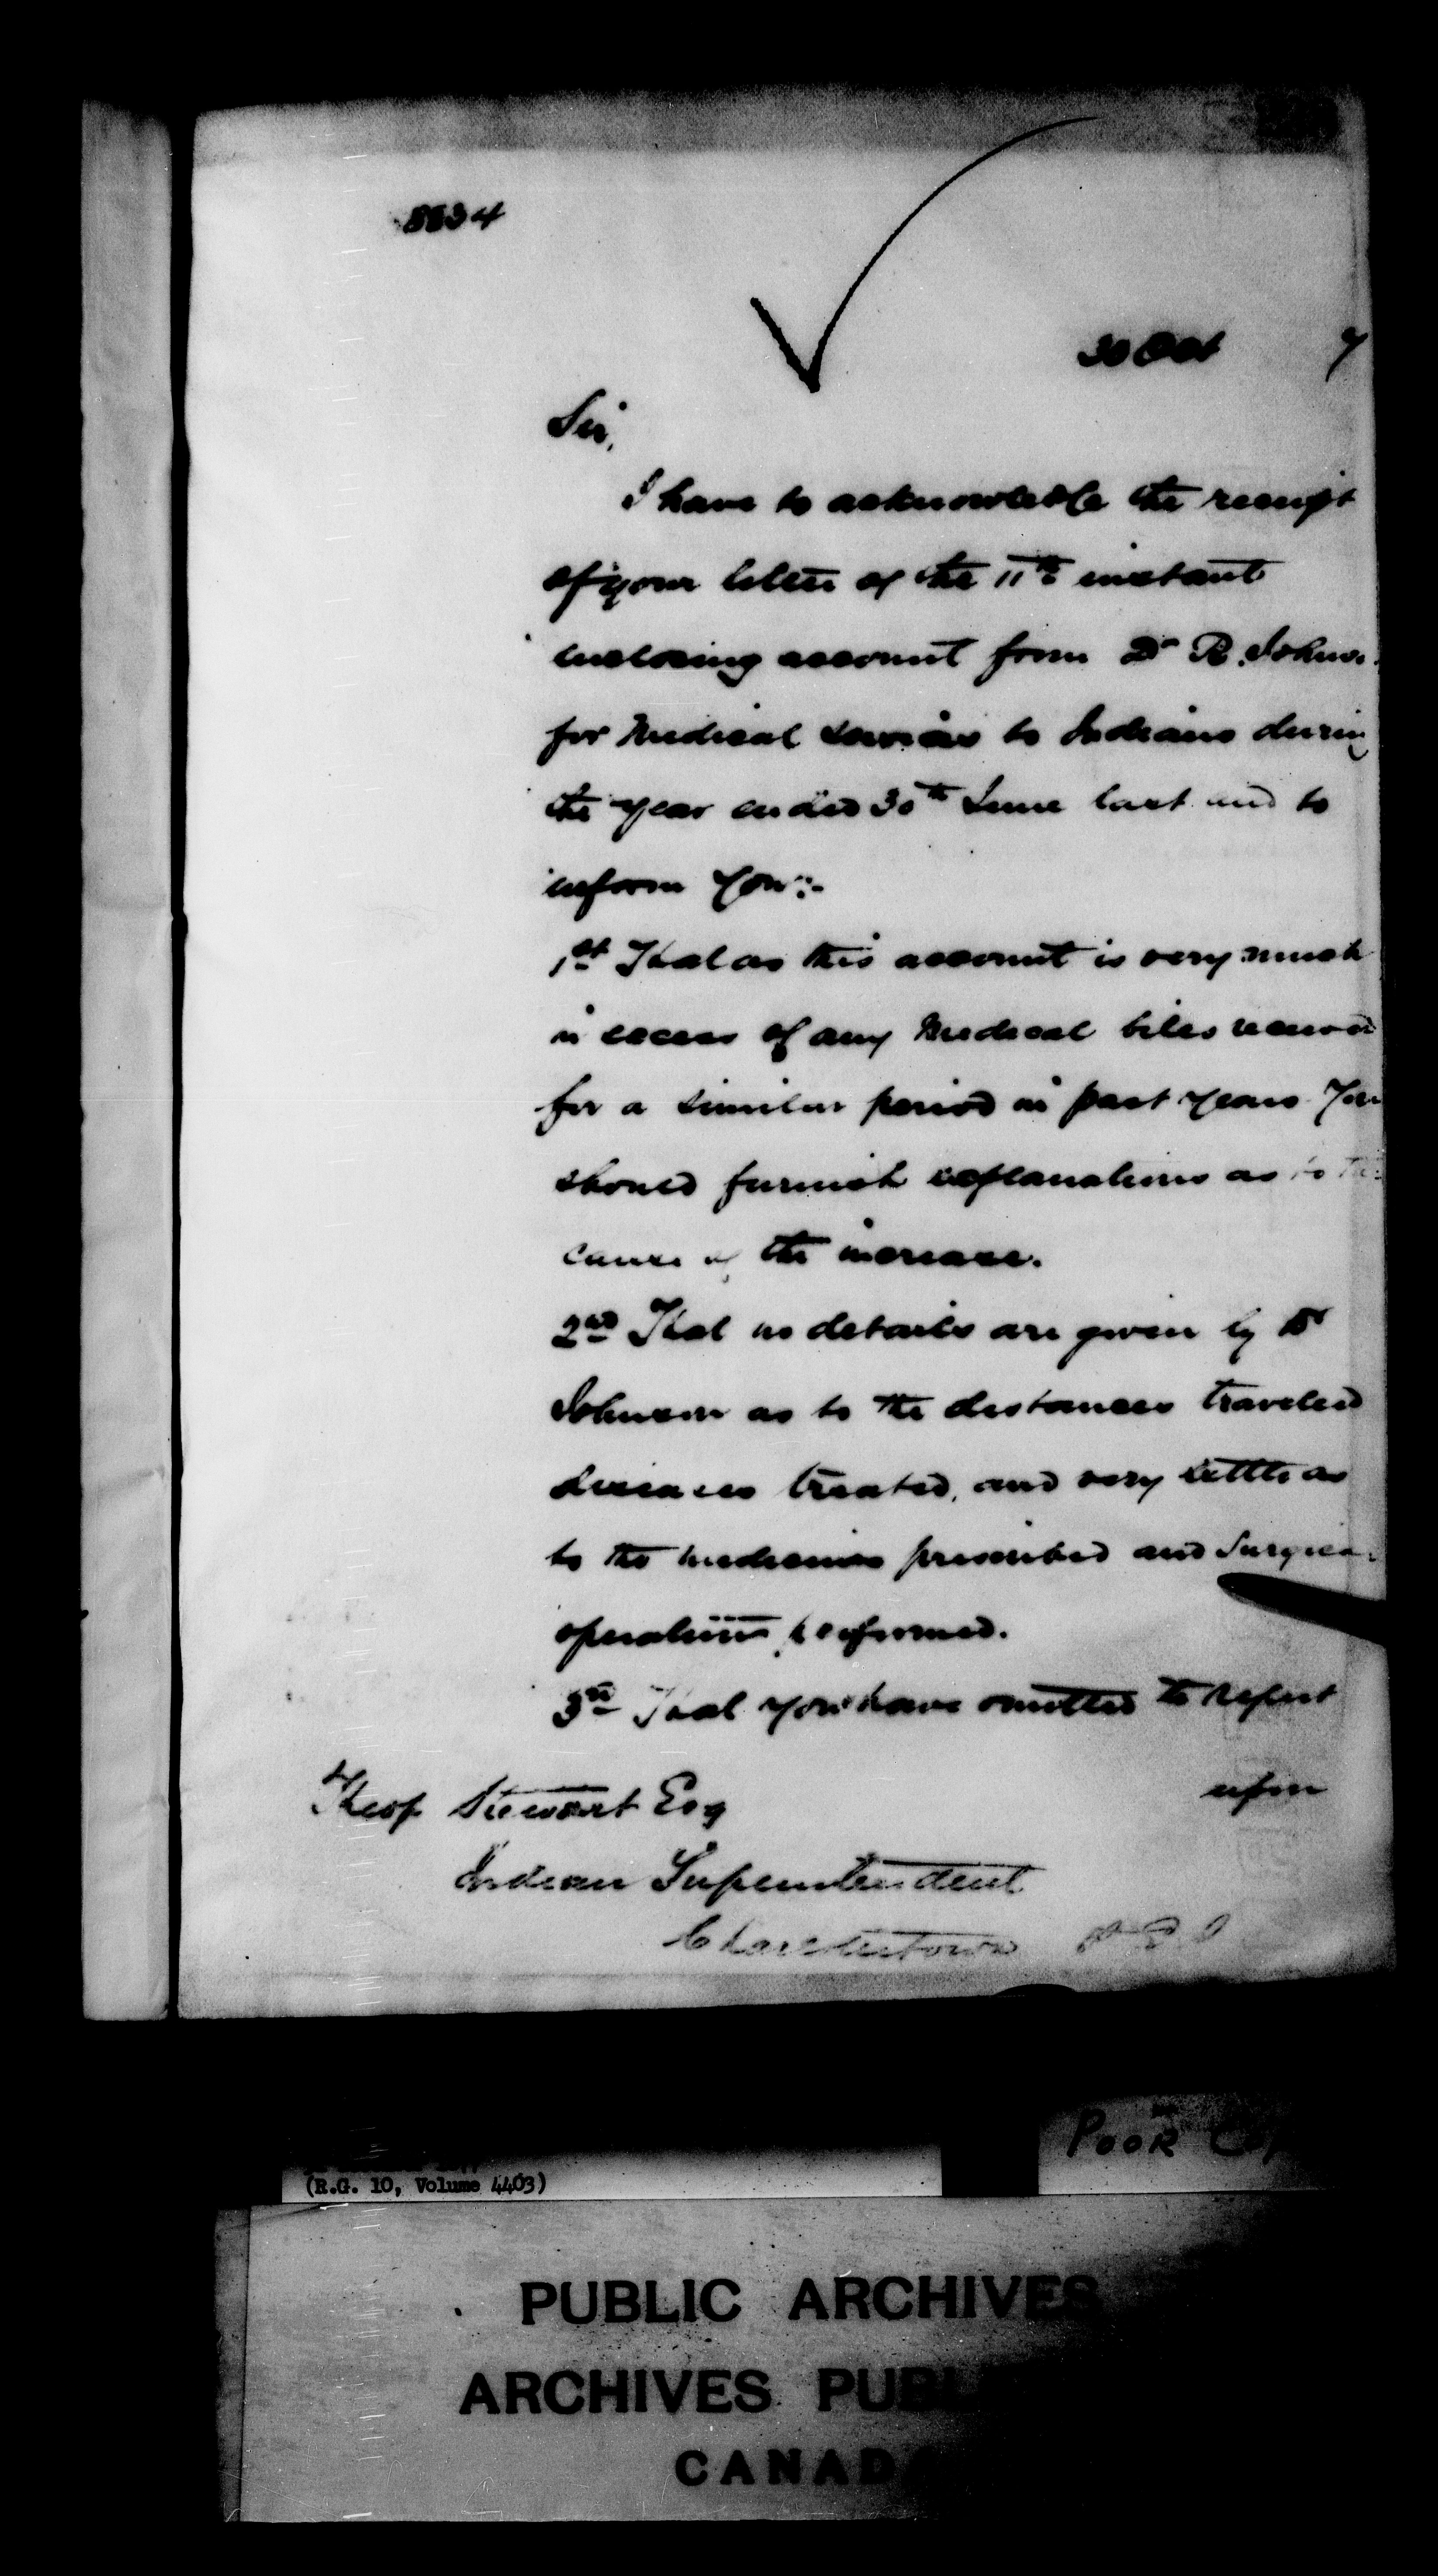 8834
30 Oct 7
Sir,
I have to acknowledge the receipt
of your letter of the 11th instant
enclosing account from Dr R. Johnso
for Medical Services to Indians durin
the year ended 30th June last and to
inform you:-
1st That as this account is very much
in excess of any Medical bills received
for a similar period in past years You
should furnish explanations as to the
cause of the increase.
2nd That no details are given by Dr
Johnson as to the distances traveled
diseases treated, and very little as
to the medicines prescribed and Surgical
operations performed.
3rd That you have omitted to report
upon
Theop Stewart Esq
Indian Superintendent
Charlottetown P.E.I
POOR COP
(R.G. 10, Volume 4403)
PUBLIC ARCHIVES
ARCHIVES PUBL
CANADA